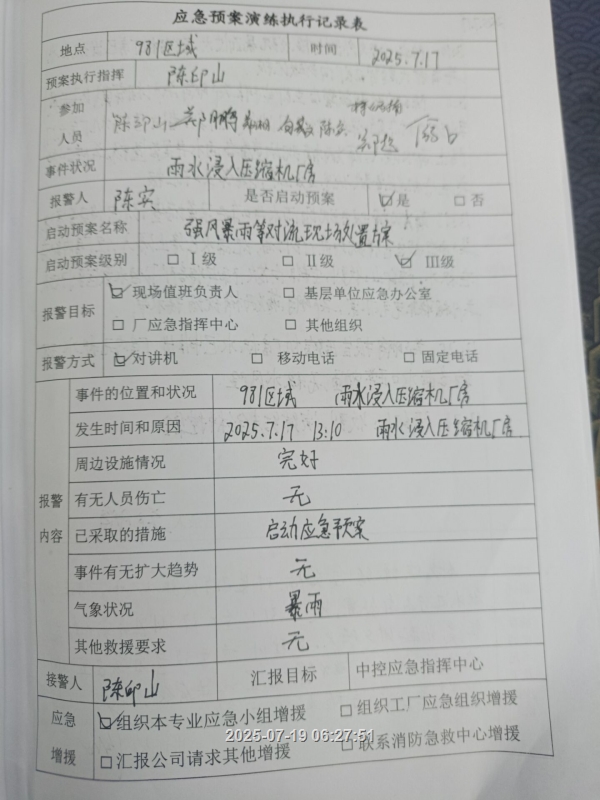 应急预案演练执行记录表
地点 981区域 时间 2025.7.17
预案执行指挥 陈印山
参加人员 陈印山
事件状况 雨水浸入压缩机厂房
报警人 陈实 是否启动预案 ☑是 □否
启动预案名称 强风暴雨等对流现场处置方案
启动预案级别 □Ⅰ级 □Ⅱ级 ☑Ⅲ级
报警目标 ☑现场值班负责人 □基层单位应急办公室
□厂应急指挥中心 □其他组织
报警方式 ☑对讲机 □移动电话 □固定电话
报警内容
事件的位置和状况 981区域 雨水浸入压缩机厂房
发生时间和原因 2025.7.17 13:10 雨水浸入压缩机厂房
周边设施情况 完好
有无人员伤亡 无
已采取的措施 启动应急预案
事件有无扩大趋势 无
气象状况 暴雨
其他救援要求 无
接警人 陈印山 汇报目标 中控应急指挥中心
应急增援 ☑组织本专业应急小组增援 □组织工厂应急组织增援
□汇报公司请求其他增援 □联系消防急救中心增援
2025-07-19 06:27:51